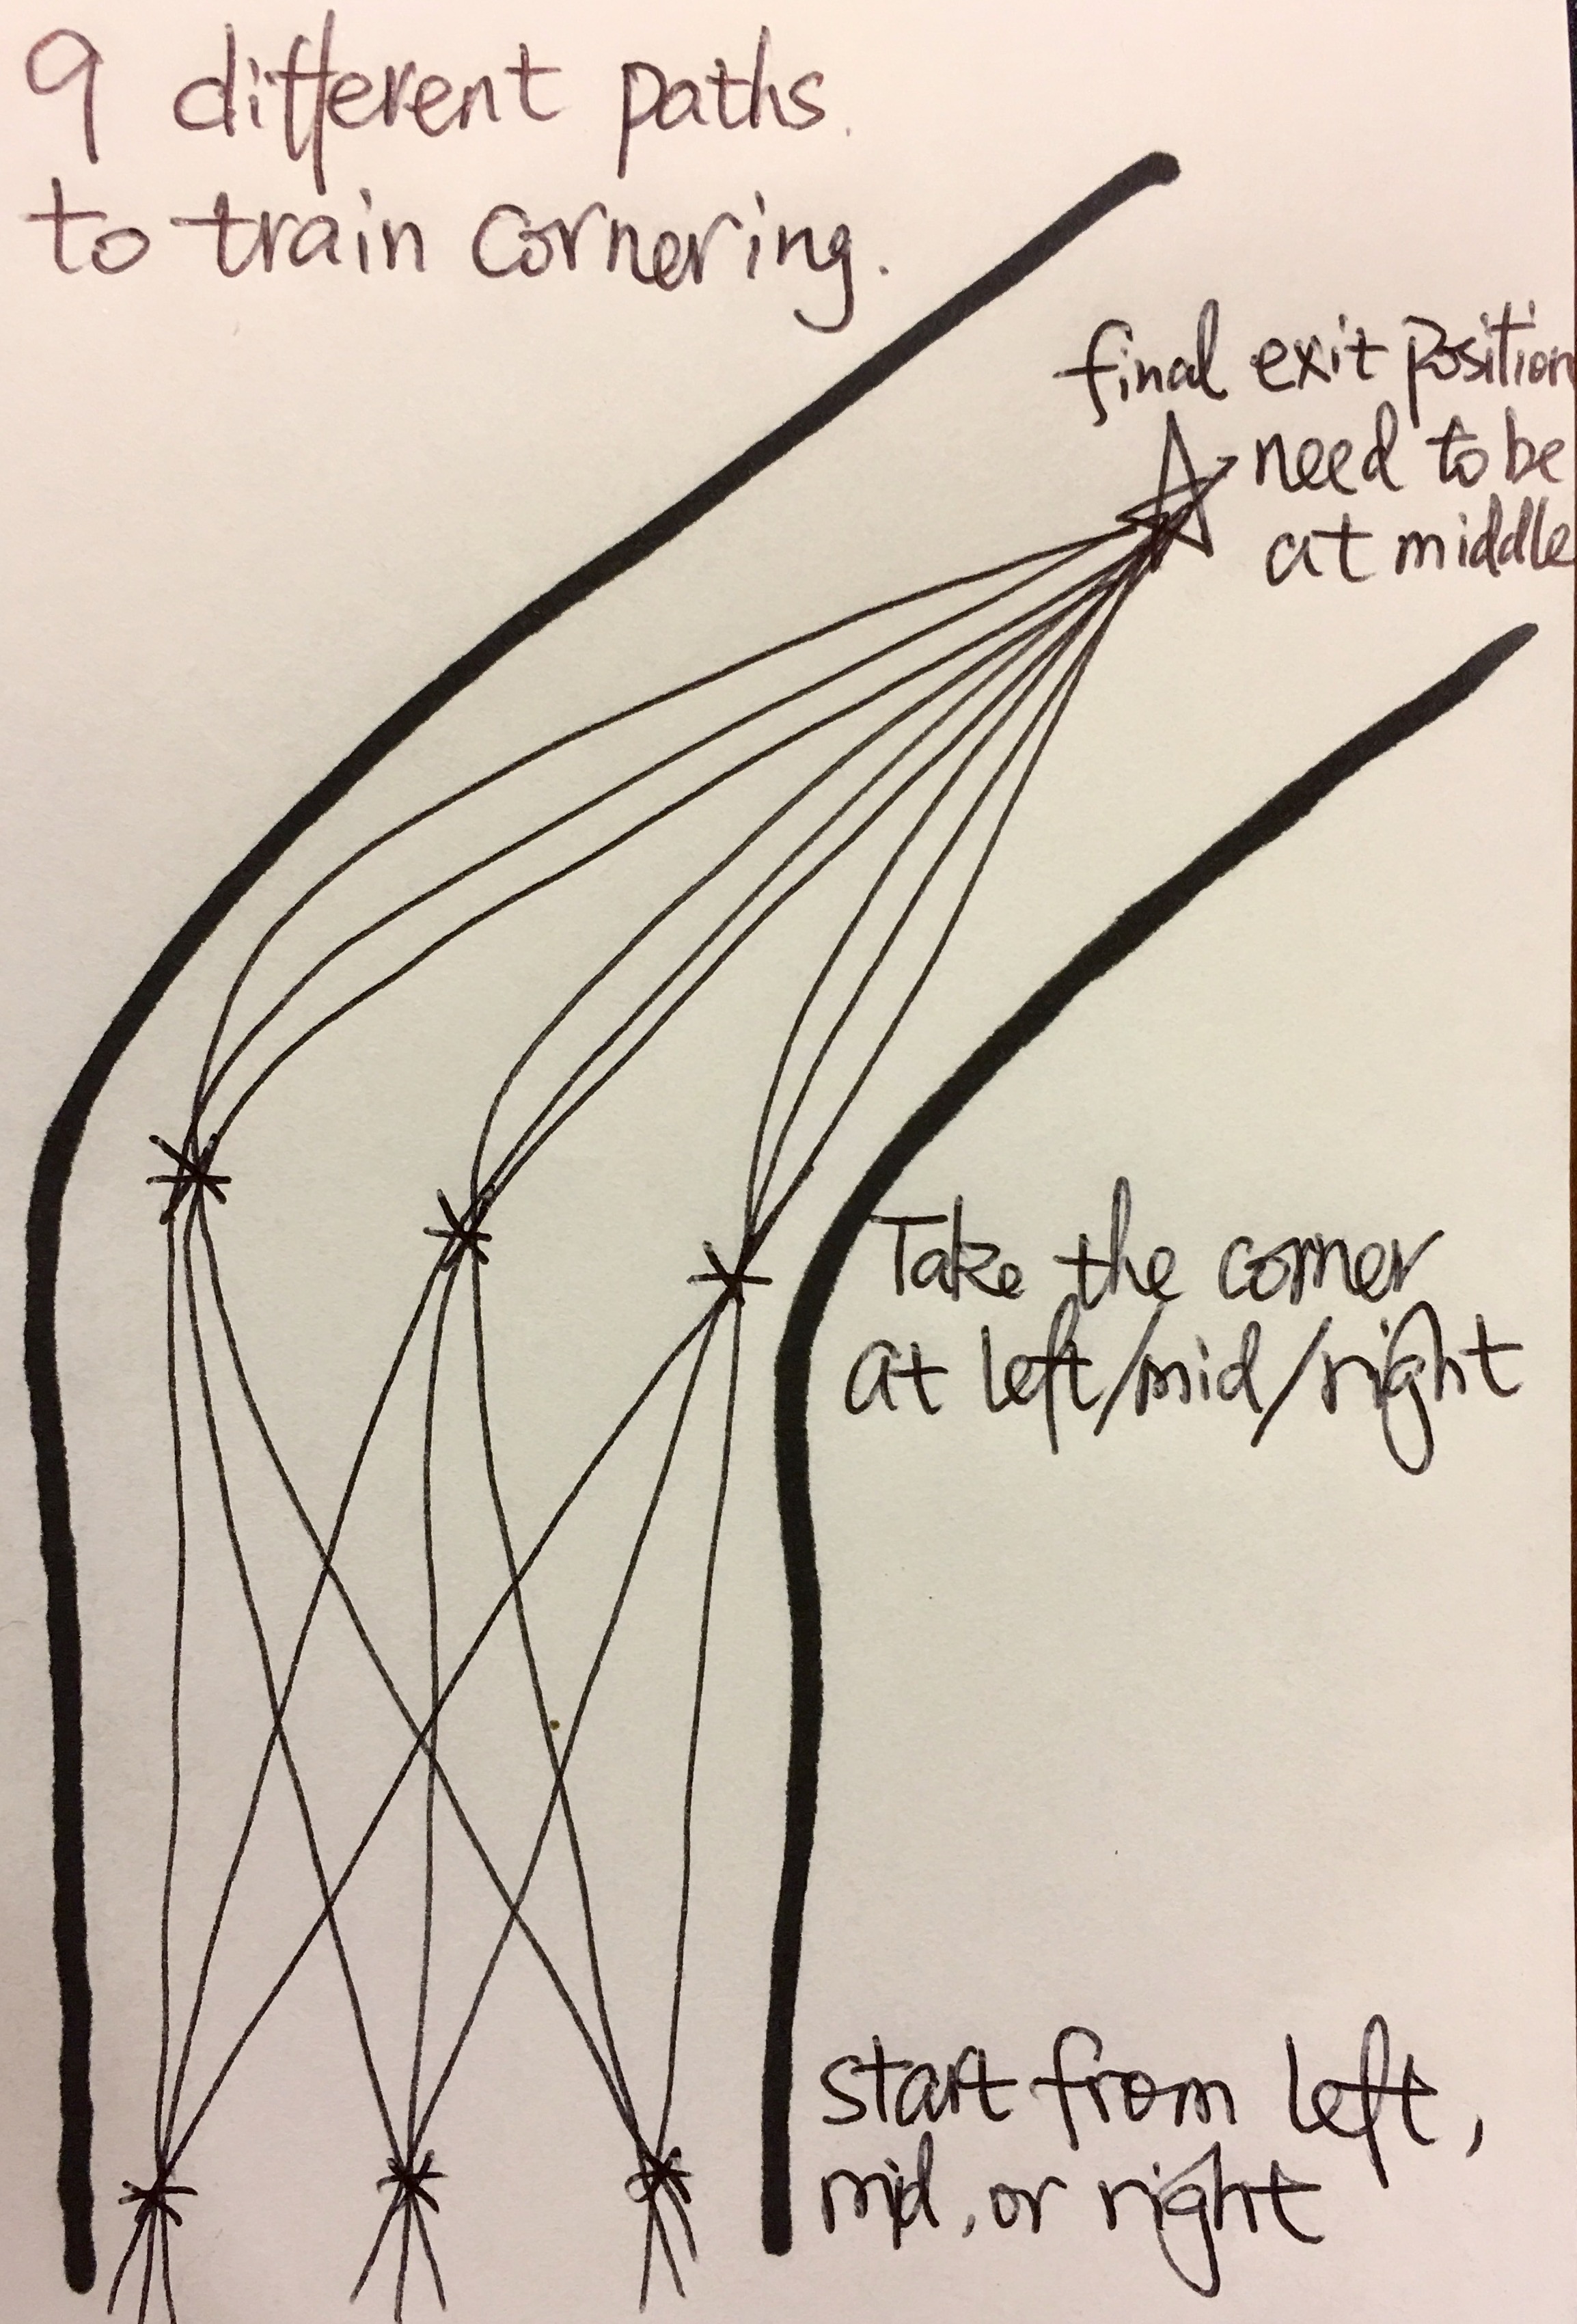 9 different paths.
to train cornering.
final exit position
need to be
at middle
Take the corner
at left/mid/right
start from left,
mid, or right